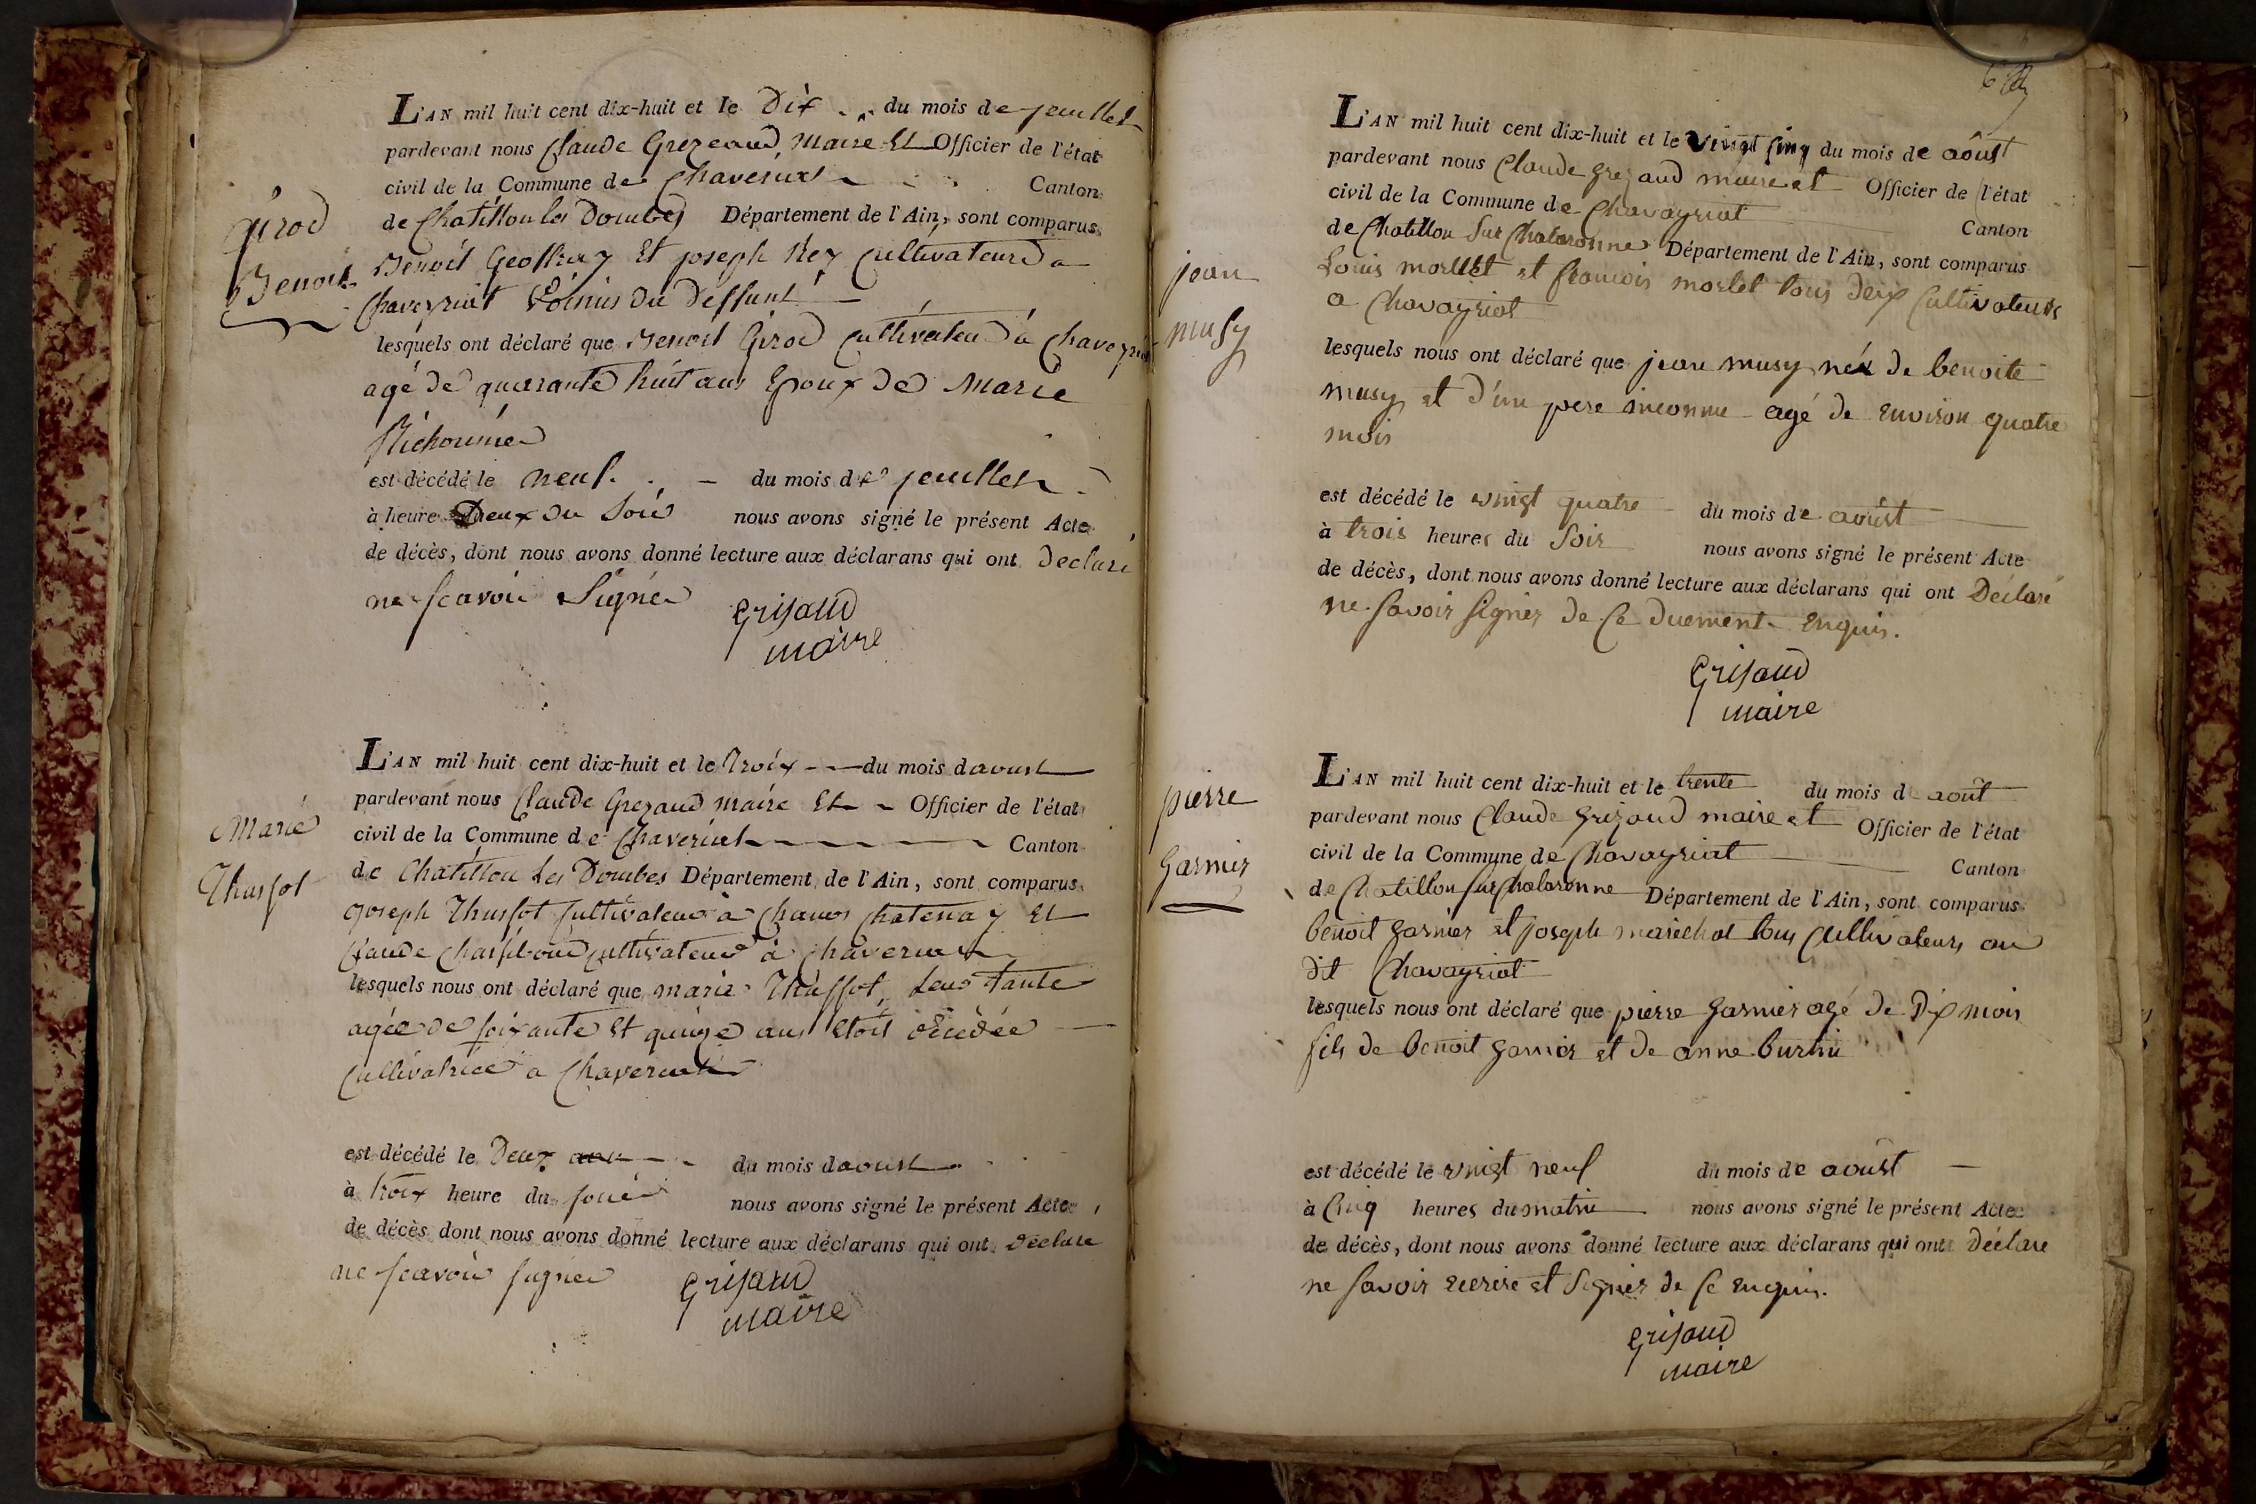 L'AN mil huit cent dix-huit et le Dix du mois de jeuillet
pardevant nous Claude Grezeaud, Maire Et Officier de l'état
civil de la Commune de Chaveriat Canton
de Chatillon les Dombes Département de l'Ain, sont comparus
Girod
Benoit
Benoit Geoffray Et joseph Rey Cultivateurs a
Chaveyriat Voisins du Deffunt
lesquels ont déclaré que Benoit Girod Cultivateur à Chaveyriat
agé de quarante huit ans Epoux de Marie
est décédé le neuf du mois de jeuillet
à heure Deux du Soir nous avons signé le présent Acte
de décès, dont nous avons donné lecture aux déclarans qui ont Declaré
ne scavoir Signer
Grisaud
maire
L'AN mil huit cent dix-huit et le Troix du mois d aoust
pardevant nous Claude Grezaud maire Et Officier de l'état
civil de la Commune de Chaveriat Canton
de Chatillon Les Dombes Département de l'Ain, sont comparus
Marie
Thusfot
joseph Thusfot Cultivateur à Chanos Chatenay Et
Claude Cultivateur à Chaveriat
lesquels nous ont déclaré que marie Thusfot, Leur tante
agée de soixante Et quinze ans Etoit décédée
Cultivatrice a Chaveriat
est décédé le Deux du mois d aoust
à troix heure du soir nous avons signé le présent Acte
de décès dont nous avons donné lecture aux déclarans qui ont déclaré
ne scavoir signer
Grisaud
maire
L'AN mil huit cent dix-huit et le vingt cinq du mois de aôust
pardevant nous Claude grezaud maire et Officier de l'état
civil de la Commune de Chavayriat Canton
de Chatillon Sur Chalaronne Département de l'Ain, sont comparus
jean
musy
Louis morllet et francois morlet tous deux Cultivateurs
a Chavayriat
lesquels nous ont déclaré que jean musy né de benoite
musy et d'un pere inconnu agé de environ quatre
mois
est décédé le vingt quatre du mois de aoûst
à trois heures du Soir nous avons signé le présent Acte
de décès, dont nous avons donné lecture aux déclarans qui ont Déclaré
ne savoir signer de Ce duement enquis.
Grisaud
maire
L'AN mil huit cent dix-huit et le trente du mois d aoüt
pardevant nous Claude grizaud maire et Officier de l'état
civil de la Commune de Chavayriat Canton
de Chatillon sur Chalaronne Département de l'Ain, sont comparus
pierre
garnier
benoit garnier et joseph marechal tous Cultivateurs au
dit Chavayriat
lesquels nous ont déclaré que pierre garnier agé de Dix mois
fils de benoit garnier et de anne burtin
est décédé le vingt neuf du mois de aoûst
à Cinq heures du matin nous avons signé le présent Acte
de décès, dont nous avons donné lecture aux déclarans qui ont déclaré
ne savoir ecrire et Signer de Ce enquis.
Grisaud
maire